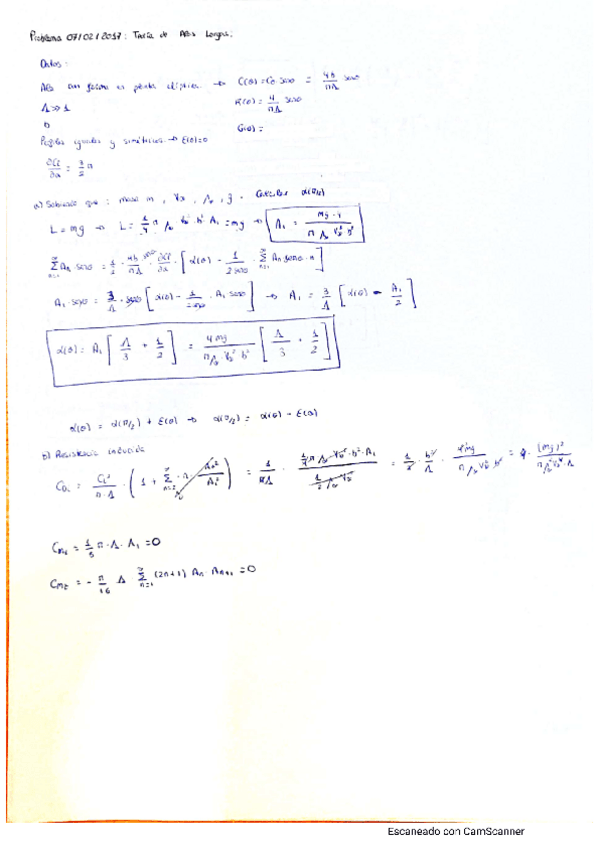 Problema 07/02/2017: Teoría de Alas Largas:
Datos:
Ala con forma en planta elíptica. → C(θ)=C₀ senθ = 4b/πΛ senθ
Λ>>1
K(θ) = 4/πΛ senθ
b
G(θ) =
Perfiles iguales y simétricos → ε(θ)=0
∂Cl/∂α = 3/2 π
a) Sabiendo que: masa m, V∞, ρ∞, g. Calcular α(π/2)
L = mg → L = 1/4 π ρ∞ V∞² b² A₁ = mg → A₁ = mg·4 / π ρ∞ V∞² b²
Σ Aₙ senθ = 1/2 · 4b/πΛ · ∂Cl/∂α · [α(θ) - 1/2senθ · Σ Aₙ senθ·n]
A₁·senθ = 3/Λ · senθ [α(θ) - 1/2senθ · A₁ senθ] → A₁ = 3/Λ [α(θ) - A₁/2]
α(θ) = A₁ [Λ/3 + 1/2] = 4mg / πρ∞·V∞²·b² [Λ/3 + 1/2]
α(θ) = α(π/2) + ε(θ) → α(π/2) = α(θ) - ε(θ)
b) Resistencia inducida
C_Di = C_L²/π·Λ · (1 + Σ n · Aₙ²/A₁²) = 1/πΛ · 1/4 π ρ∞ · V∞² · b² · A₁ / 1/2 ρ∞ V∞² = 1/2 · b²/Λ · 4mg / π ρ∞ V∞² b² = 4 · (mg)² / π ρ∞² V∞⁴ · Λ
= 1/5 π · Λ · A₁ = 0
= - π/16 Λ Σ (2n+1) Aₙ · Aₙ₊₁ = 0
Escaneado con CamScanner